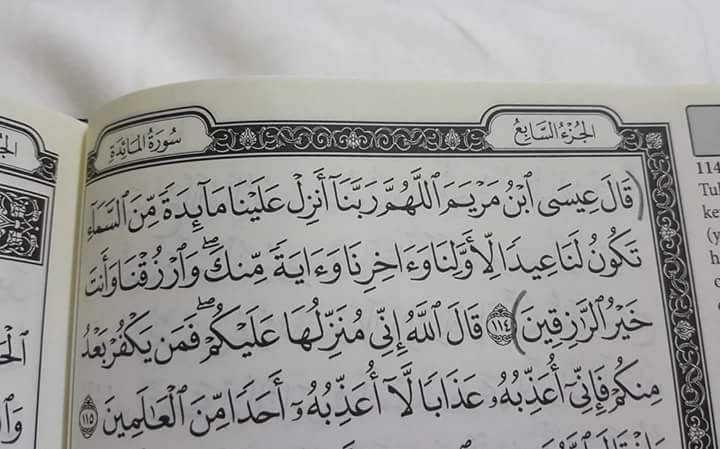 الجزء السابع
سورة المائدة
قَالَ عِيسَى ٱبْنُ مَرْيَمَ ٱللَّهُمَّ رَبَّنَآ أَنزِلْ عَلَيْنَا مَآئِدَةً مِّنَ ٱلسَّمَآءِ
تَكُونُ لَنَا عِيدًا لِّأَوَّلِنَا وَءَاخِرِنَا وَءَايَةً مِّنكَ ۖ وَٱرْزُقْنَا وَأَنتَ
خَيْرُ ٱلرَّٰزِقِينَ ١١٤ قَالَ ٱللَّهُ إِنِّى مُنَزِّلُهَا عَلَيْكُمْ ۖ فَمَن يَكْفُرْ بَعْدُ
مِنكُمْ فَإِنِّىٓ أُعَذِّبُهُۥ عَذَابًا لَّآ أُعَذِّبُهُۥٓ أَحَدًا مِّنَ ٱلْعَٰلَمِينَ ١١٥
114
Tu
ke
(y
h